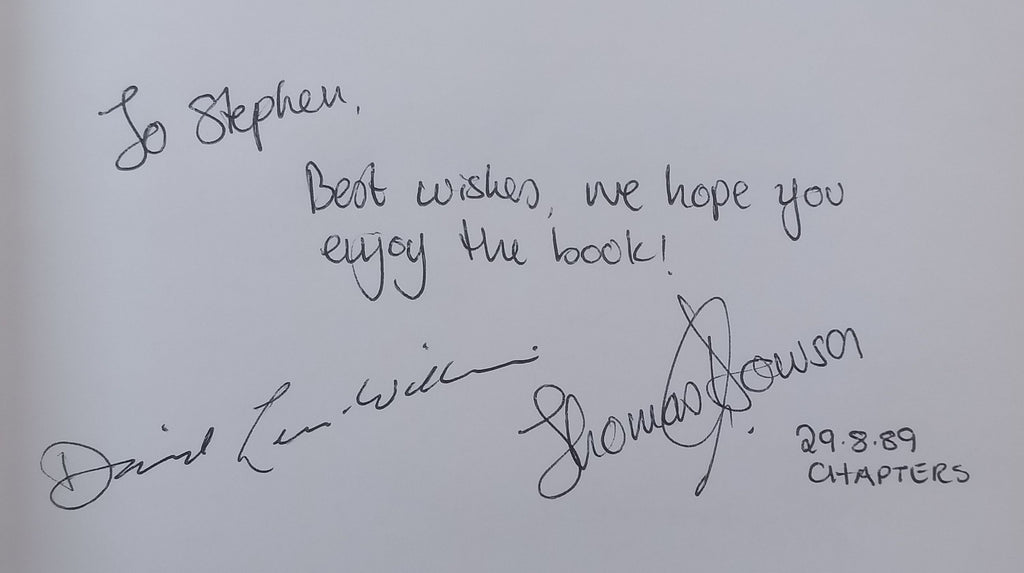 To Stephen,
Best wishes, we hope you
enjoy the book!
David Lewis-Williams
Thomas A Dowson
29.8.89
CHAPTERS